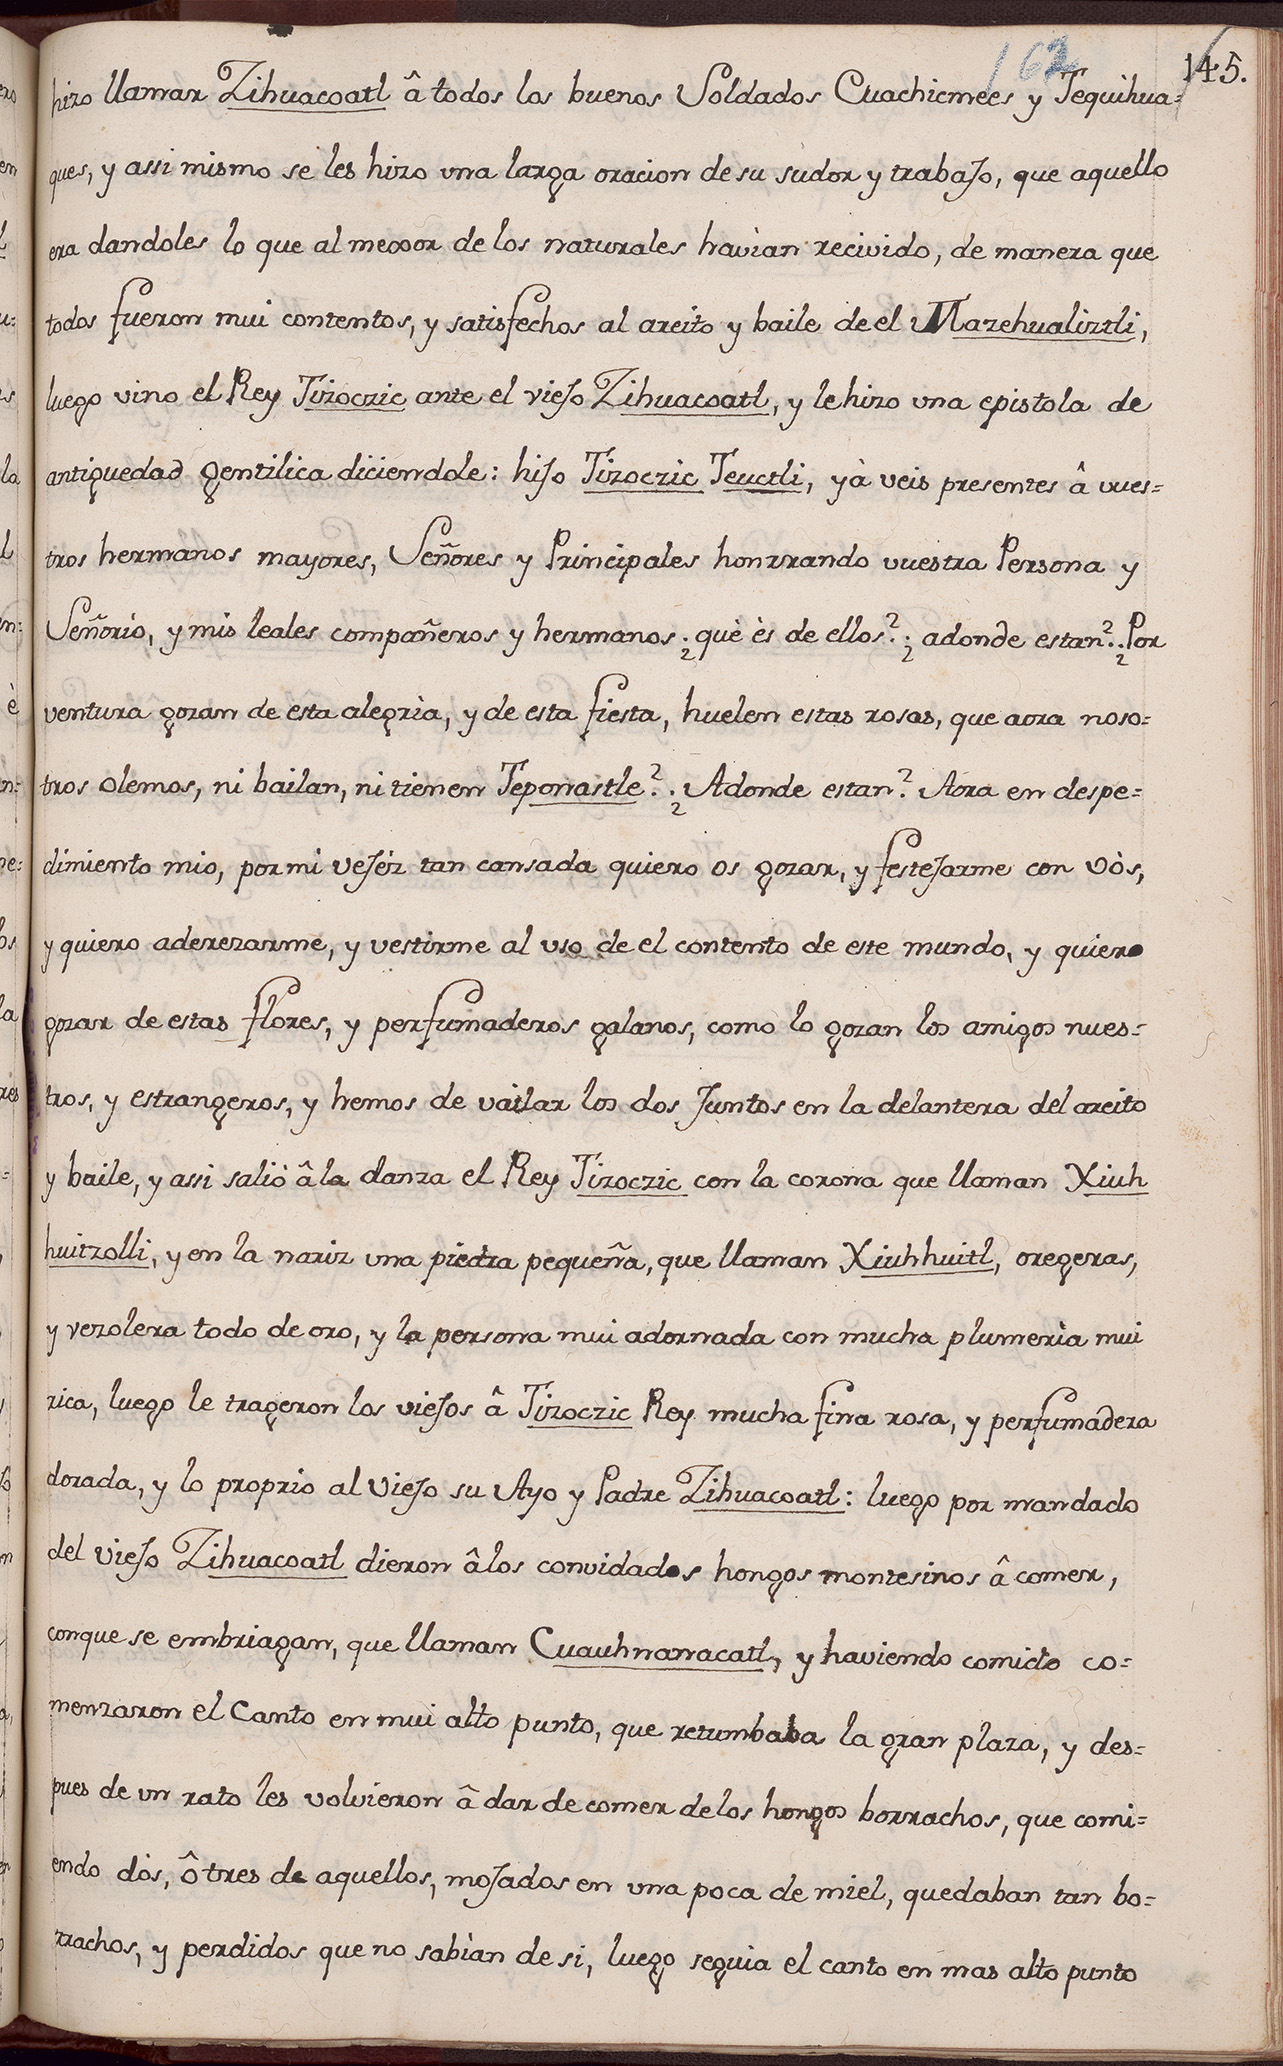 162
145.
hizo llamar Zihuacoatl â todos los buenos Soldados Cuachicmees y Tequihua=
ques, y assi mismo se les hizo una larga oracion de su sudor y trabajo, que aquello
era dandoles lo que al menor de los naturales havian recivido, de manera que
todos fueron mui contentos, y satisfechos al areito y baile de el Mazehualiztli,
luego vino el Rey Tizoczic ante el viejo Zihuacoatl, y le hizo una epistola de
antiguedad gentilica diciendole: hijo Tizoczic Teuctli, yà veis presentes â vues=
tros hermanos mayores, Señores y Principales honrrando vuestra Persona y
Señorio, y mis leales compañeros y hermanos ¿què ès de ellos? ¿adonde estan? ¿Por
ventura gozan de esta alegrìa, y de esta fiesta, huelen estas rosas, que aora noso=
tros olemos, ni bailan, ni tienen Teponastle? ¿Adonde estan? Aora en despe=
dimiento mio, por mi vejéz tan cansada quiero os gozar, y festejarme con vòs,
y quiero aderezarme, y vestirme al uso de el contento de este mundo, y quiero
gozar de estas flores, y perfumaderos galanos, como lo gozan los amigos nues=
tros, y estrangeros, y hemos de vailar los dos Juntos en la delantera del areito
y baile, y assi saliò â la danza el Rey Tizoczic con la corona que llaman Xiuh
huitzolli, y en la nariz una piedra pequeña, que llaman Xiuhhuitl, oregeras,
y vezolera todo de oro, y la persona mui adornada con mucha plumerìa mui
rica, luego le trageron los viejos â Tizoczic Rey mucha fina rosa, y perfumadera
dorada, y lo proprio al Viejo su Ayo y Padre Zihuacoatl: luego por mandado
del viejo Zihuacoatl dieron â los convidados hongos montesinos â comer,
conque se embriagan, que llaman Cuauhnanacatl, y haviendo comido co=
menzaron el Canto en mui alto punto, que retumbaba la gran plaza, y des=
pues de un rato les volvieron â dar de comer de los hongos borrachos, que comi=
endo dòs, ô tres de aquellos, mojados en una poca de miel, quedaban tan bo=
rrachos, y perdidos que no sabìan de si, luego seguia el canto en mas alto punto